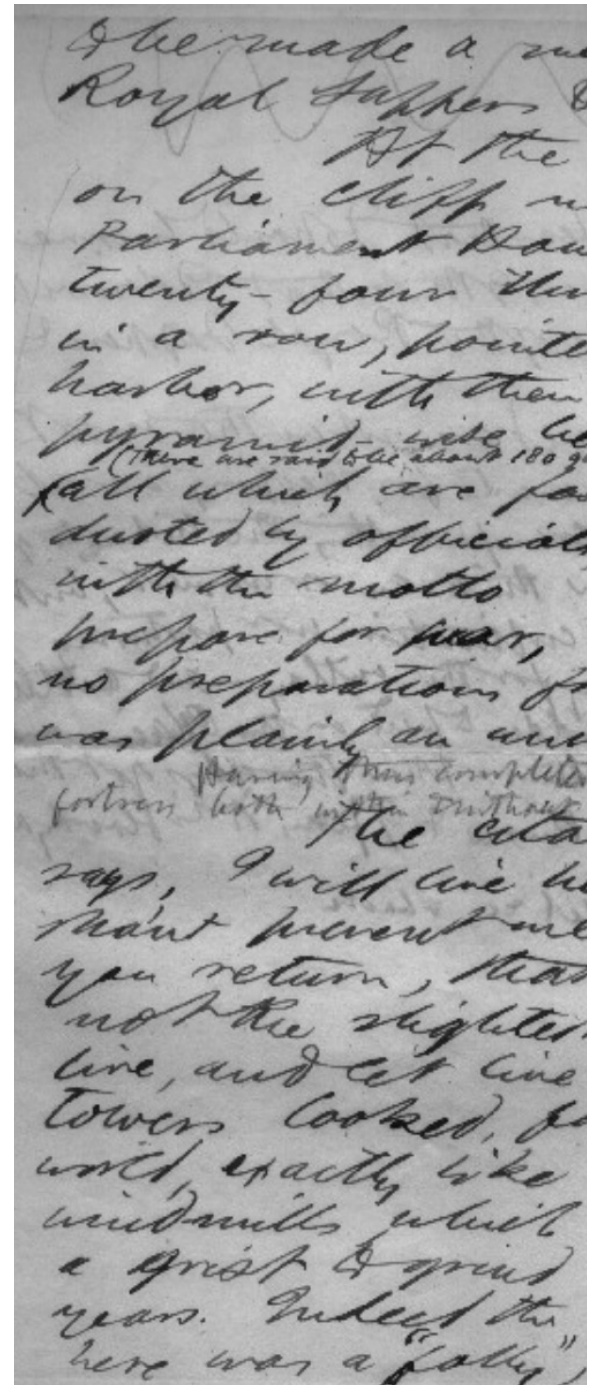 & he made a me
Royal Sappers &
At the
on the cliff n
Parliament Hou
twenty-four thir
in a row, pointe
harbor, with their
pyramid-wise be
(there are said to be about 180 gu
(all which are fa
dusted by officials
with the motto
prepare for war,
no preparations fo
was plainly an un
Having thus complete
fortress both within & without
The cita
says, I will live he
shant prevent me
you return, that
not the slightest
live, and let live
towers looked, fo
world, exactly like
windmills which
a grist to grind
years. Indeed the
here was a "folly"